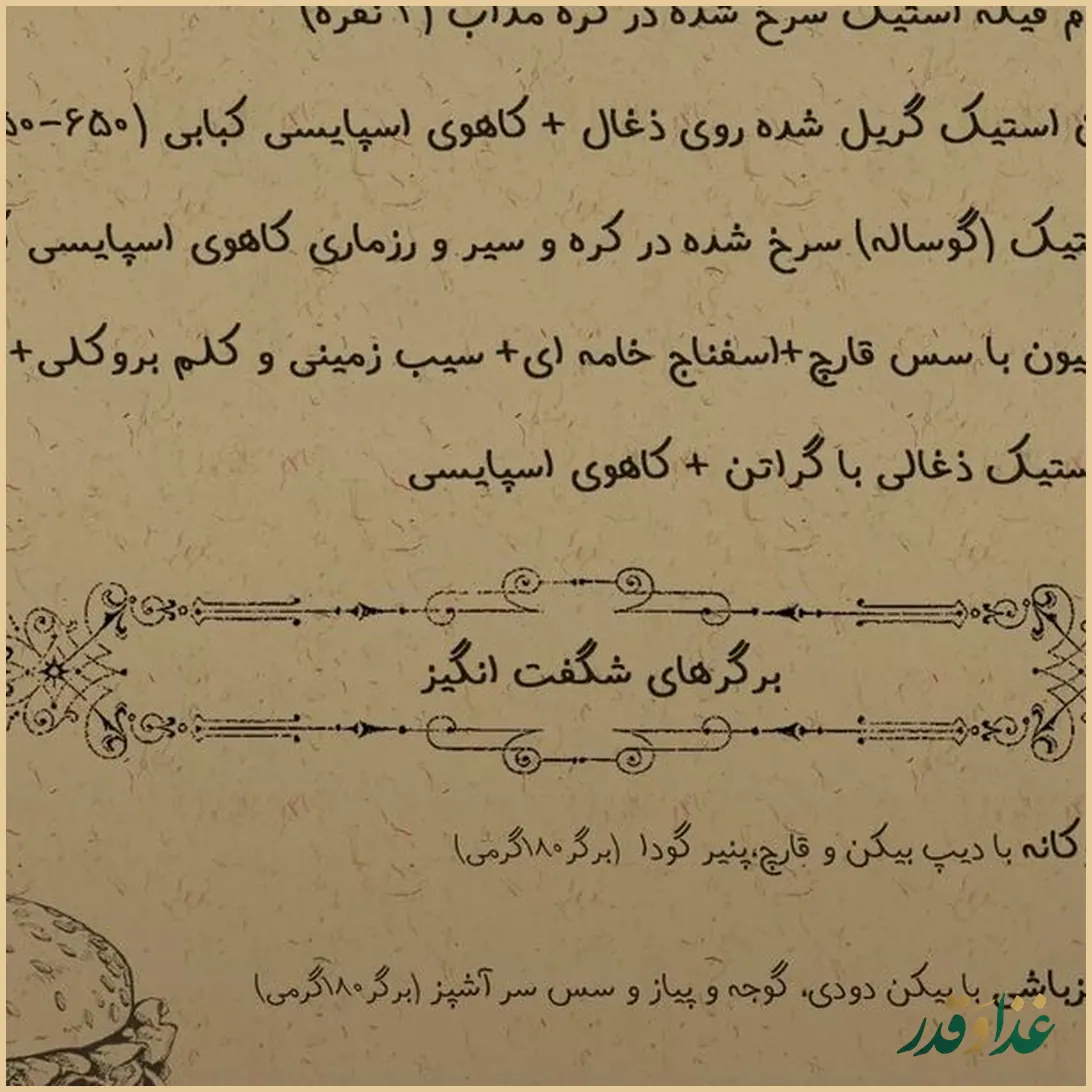 فیله استیک سرخ شده در کره مذاب (۲ نفره)
استیک گریل شده روی ذغال + کاهوی اسپایسی کبابی (۶۵۰-
(گوساله) سرخ شده در کره و سیر و رزماری کاهوی اسپایسی
با سس قارچ+اسفناج خامه ای+ سیب زمینی و کلم بروکلی+
ذغالی با گراتن + کاهوی اسپایسی
برگرهای شگفت انگیز
کانه با دیپ بیکن و قارچ،پنیر گودا (برگر۱۸۰گرمی)
با بیکن دودی، گوجه و پیاز و سس سر آشپز (برگر۱۸۰گرمی)
غذا و قدر